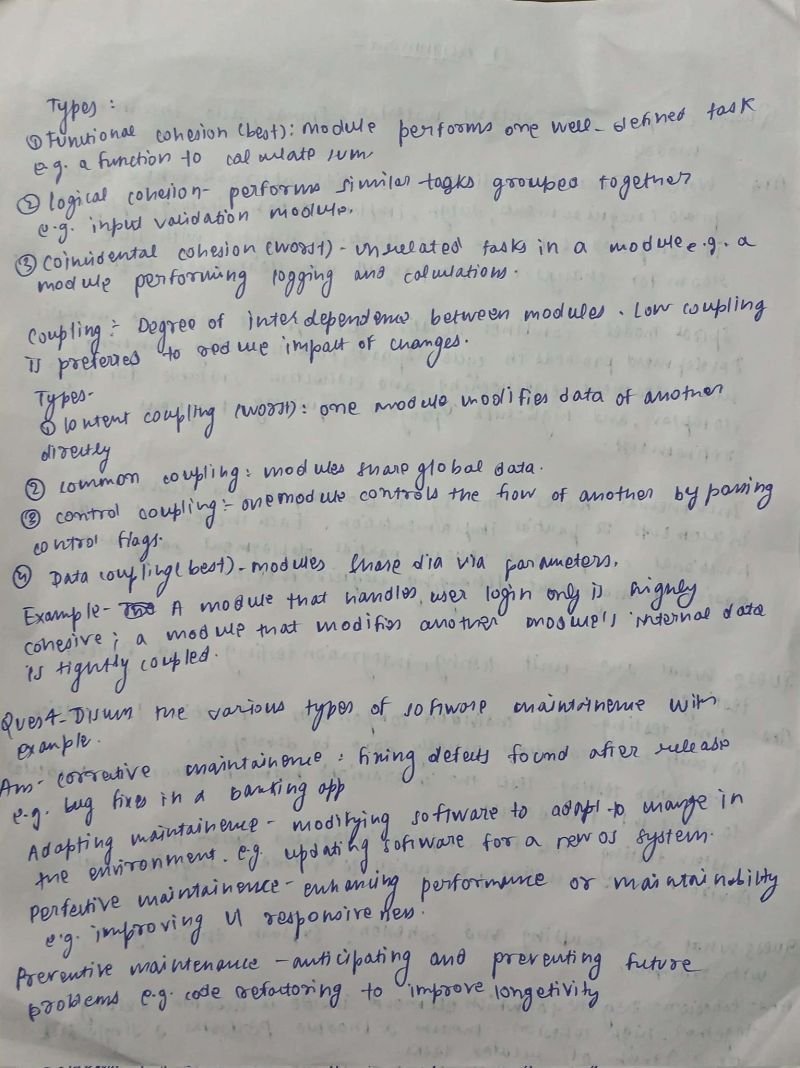 Types :
① Functional cohesion (best): module performs one well-defined task
e.g. a function to calculate sum
② logical cohesion- performs similar tasks grouped together
e.g. input validation module.
③ Coincidental cohesion (worst) - unrelated tasks in a module e.g. a
module performing logging and calculations.
Coupling :- Degree of interdependence between modules. Low coupling
is preferred to reduce impact of changes.
Types-
① Content coupling (worst): one module modifies data of another
directly
② common coupling: modules share global data.
③ control coupling :- one module controls the flow of another by passing
control flags.
④ Data coupling (best) - modules share dia via parameters.
Example - A module that handles user login only is highly
cohesive ; a module that modifies another module's internal data
is tightly coupled.
Ques4- Discuss the various types of software maintainence with
example.
Ans- corrective maintainence : fixing defects found after release
e.g. bug fixes in a banking app
Adapting maintainence - modifying software to adapt to change in
the environment. e.g. updating software for a new os system.
perfective maintainence - enhancing performance or maintainability
e.g. improving UI responsiveness.
Preventive maintenance - anticipating and preventing future
problems e.g. code refactoring to improve longetivity